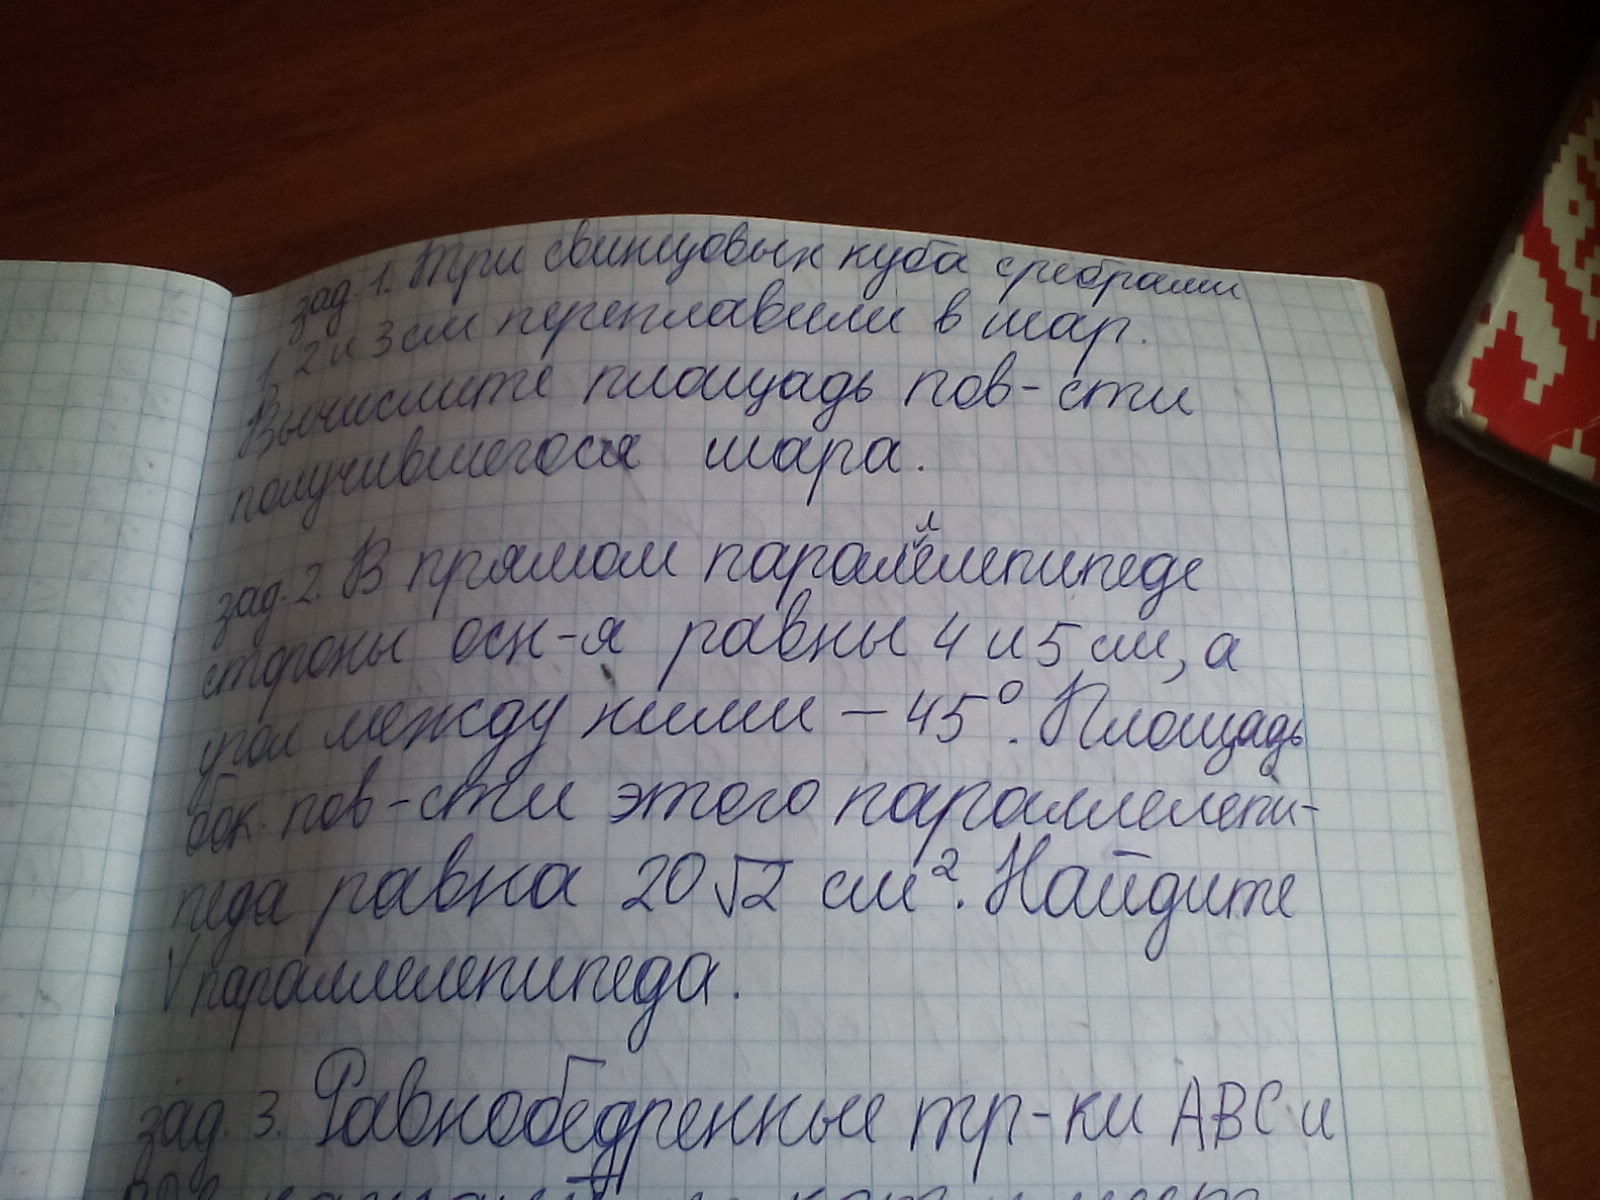 зад. 1. Три свинцовых куба с ребрами
1, 2 и 3 см переплавили в шар.
Вычислите площадь пов-сти
получившегося шара.
зад. 2. В прямом параллелепипеде
стороны осн-я равны 4 и 5 см, а
угол между ними – 45°. Площадь
бок. пов-сти этого параллелепи-
педа равна 20√2 см². Найдите
V параллелепипеда.
зад. 3. Равнобедренные тр-ки ABC и